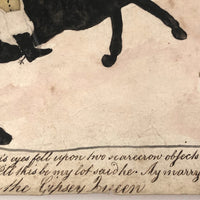 is eyes fell upon two scarecrow objects
ll this be my lot said he. My marry
the Gipsey Queen